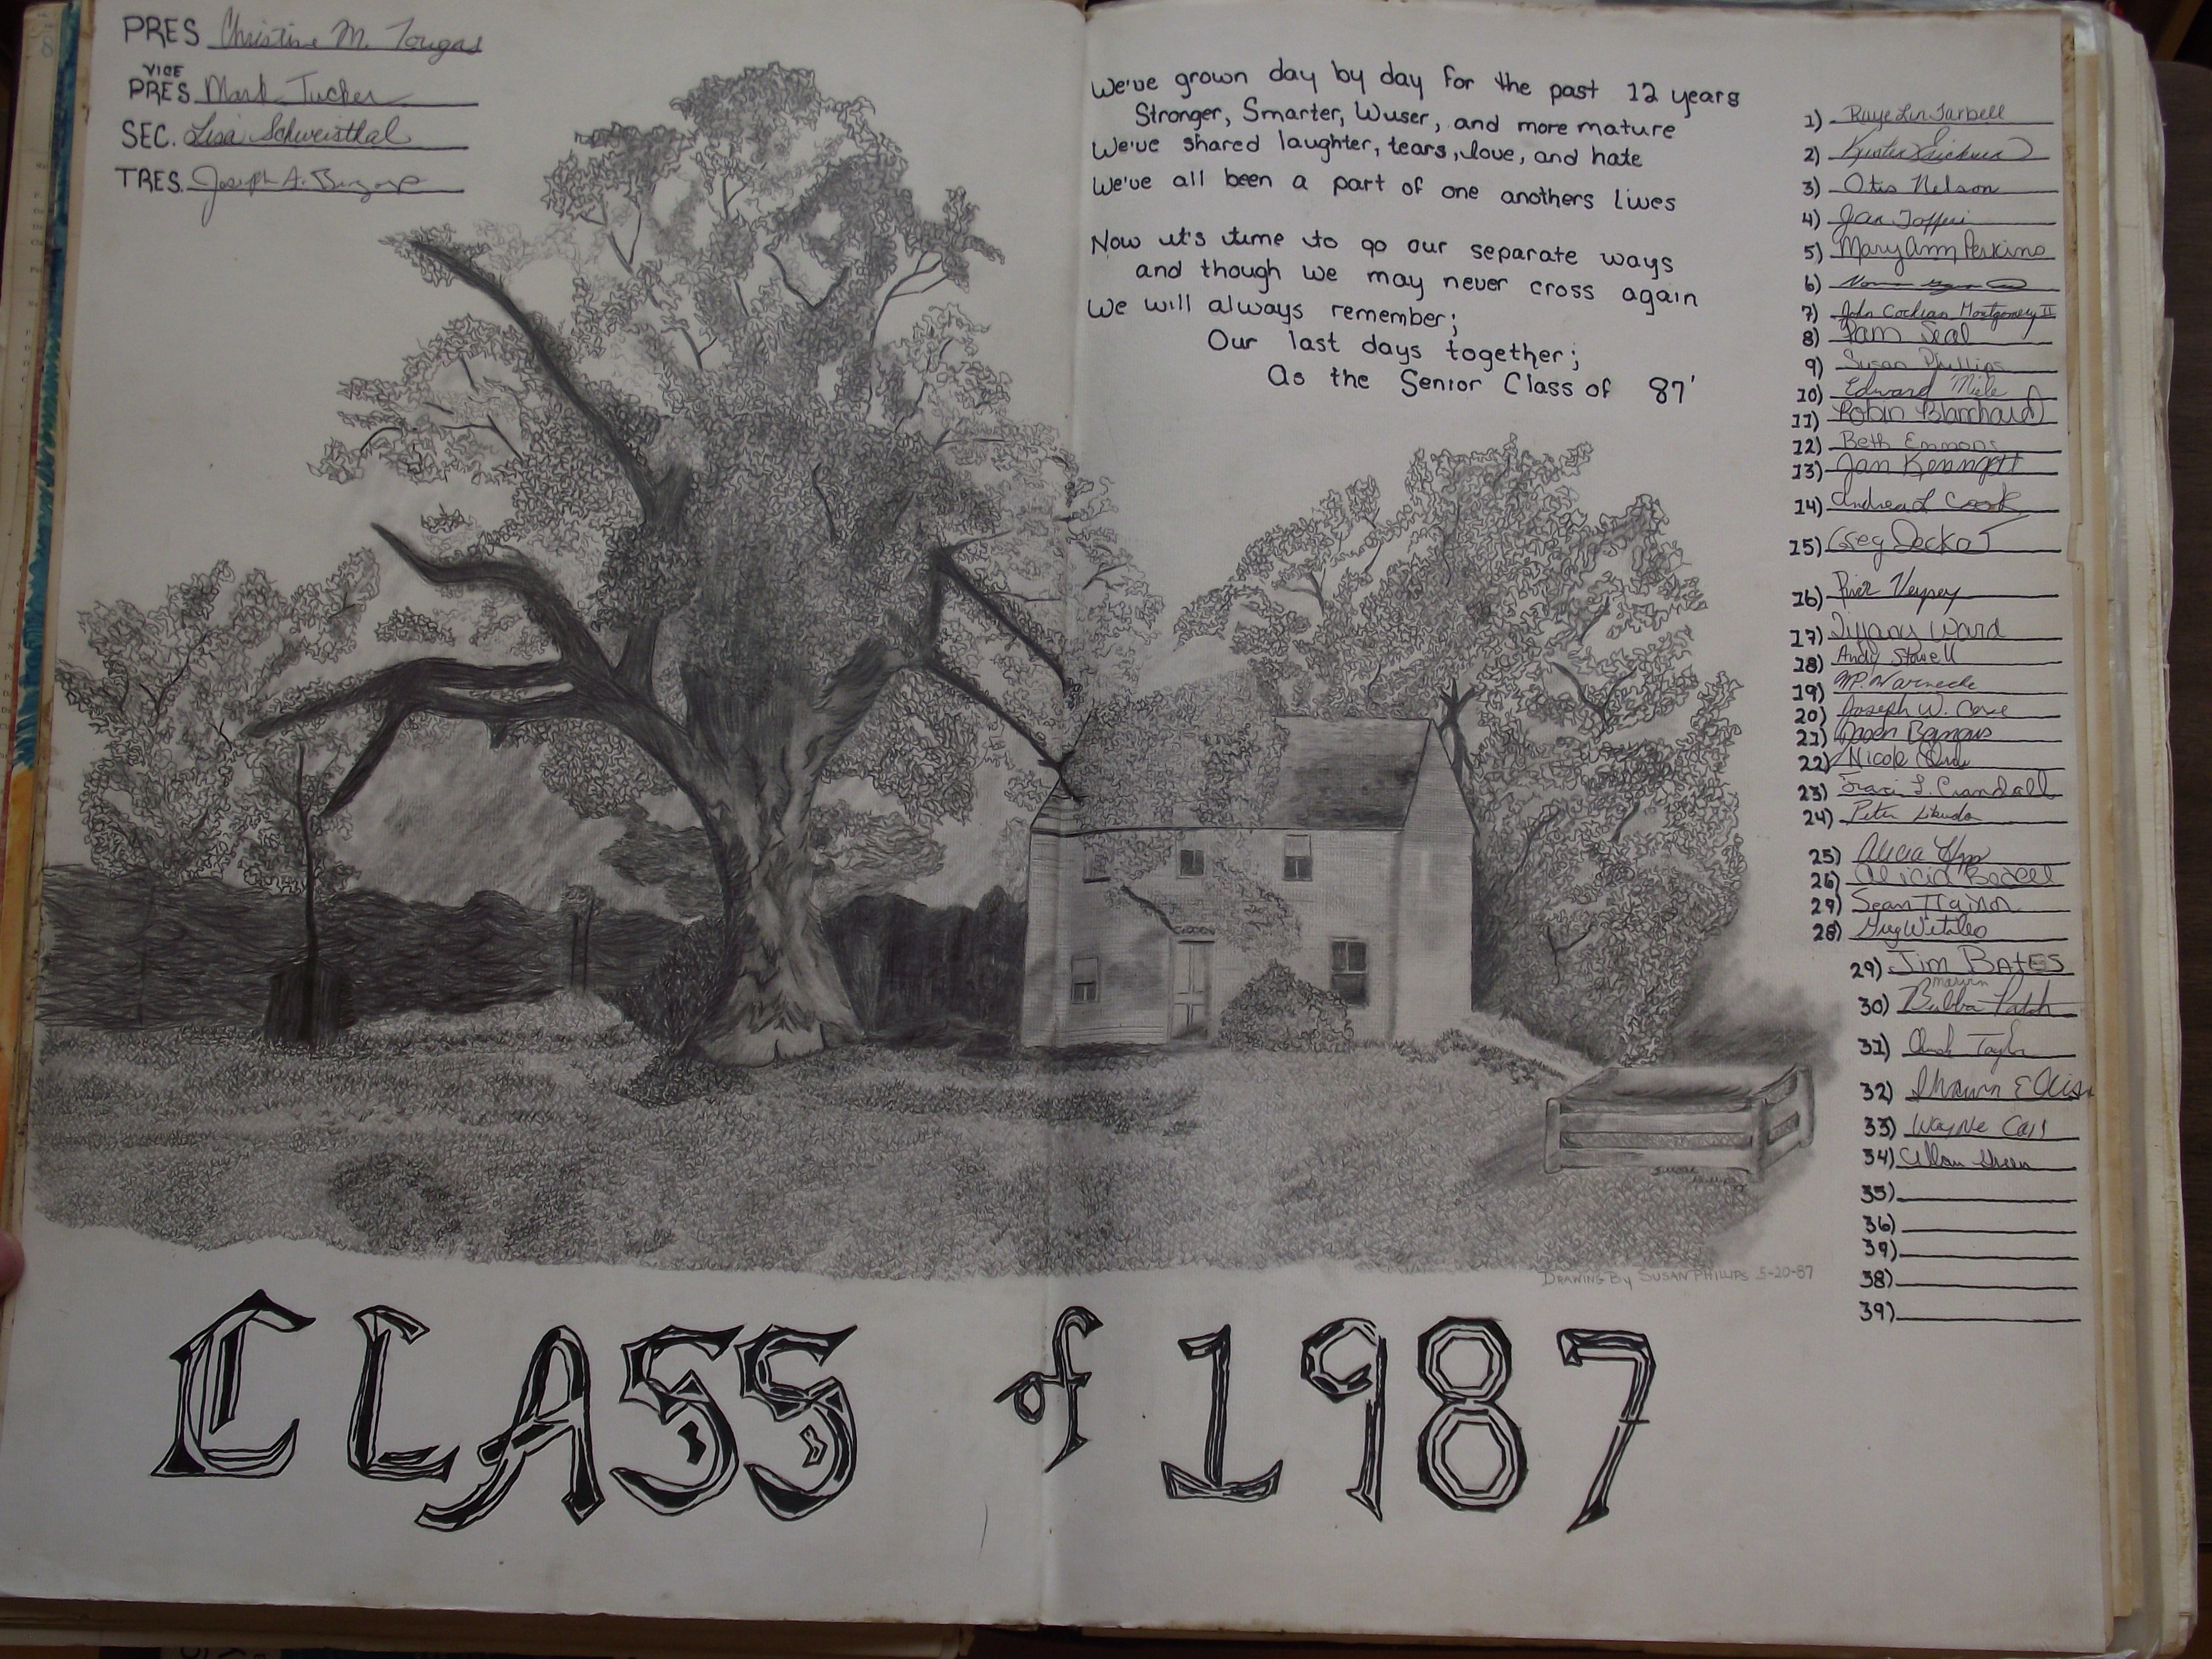 PRES Christine M. Tougas
VICE
PRES Mark Tucker
SEC. Lisa Schweisthal
TRES. Joseph A.
We've grown day by day for the past 12 years
Stronger, Smarter, Wiser, and more mature
We've shared laughter, tears, love, and hate
We've all been a part of one anothers lives
Now it's time to go our separate ways
and though we may never cross again
We will always remember;
Our last days together;
As the Senior Class of 87'
1) Raye Lin Tarbell
2)
3) Otis Nelson
4)
5) Mary Ann Perkins
6)
7) John Cochran Montgomery II
8) Pam Seal
9) Susan Phillips
10) Edward Miele
11) Robin Blanchard
12) Beth Emmons
13) Jan
14) Andrea L Cook
15) Greg
16)
17) Tiffany Ward
18) Andy Stowell
19) Warnecke
20) Joseph W.
21)
22) Nicole
23) Traci L. Crandall
24) Peter
25) Alicia
26) Alicia
29) Sean Trainor
28) Greg
29) Jim Bates
30) Bubba Patch
31) Chuck Taylor
32) Shawn Ellis
33) Wayne
34) Allan Green
35)
36)
39)
38)
39)
DRAWING BY SUSAN PHILLIPS 5-20-87
CLASS of 1987